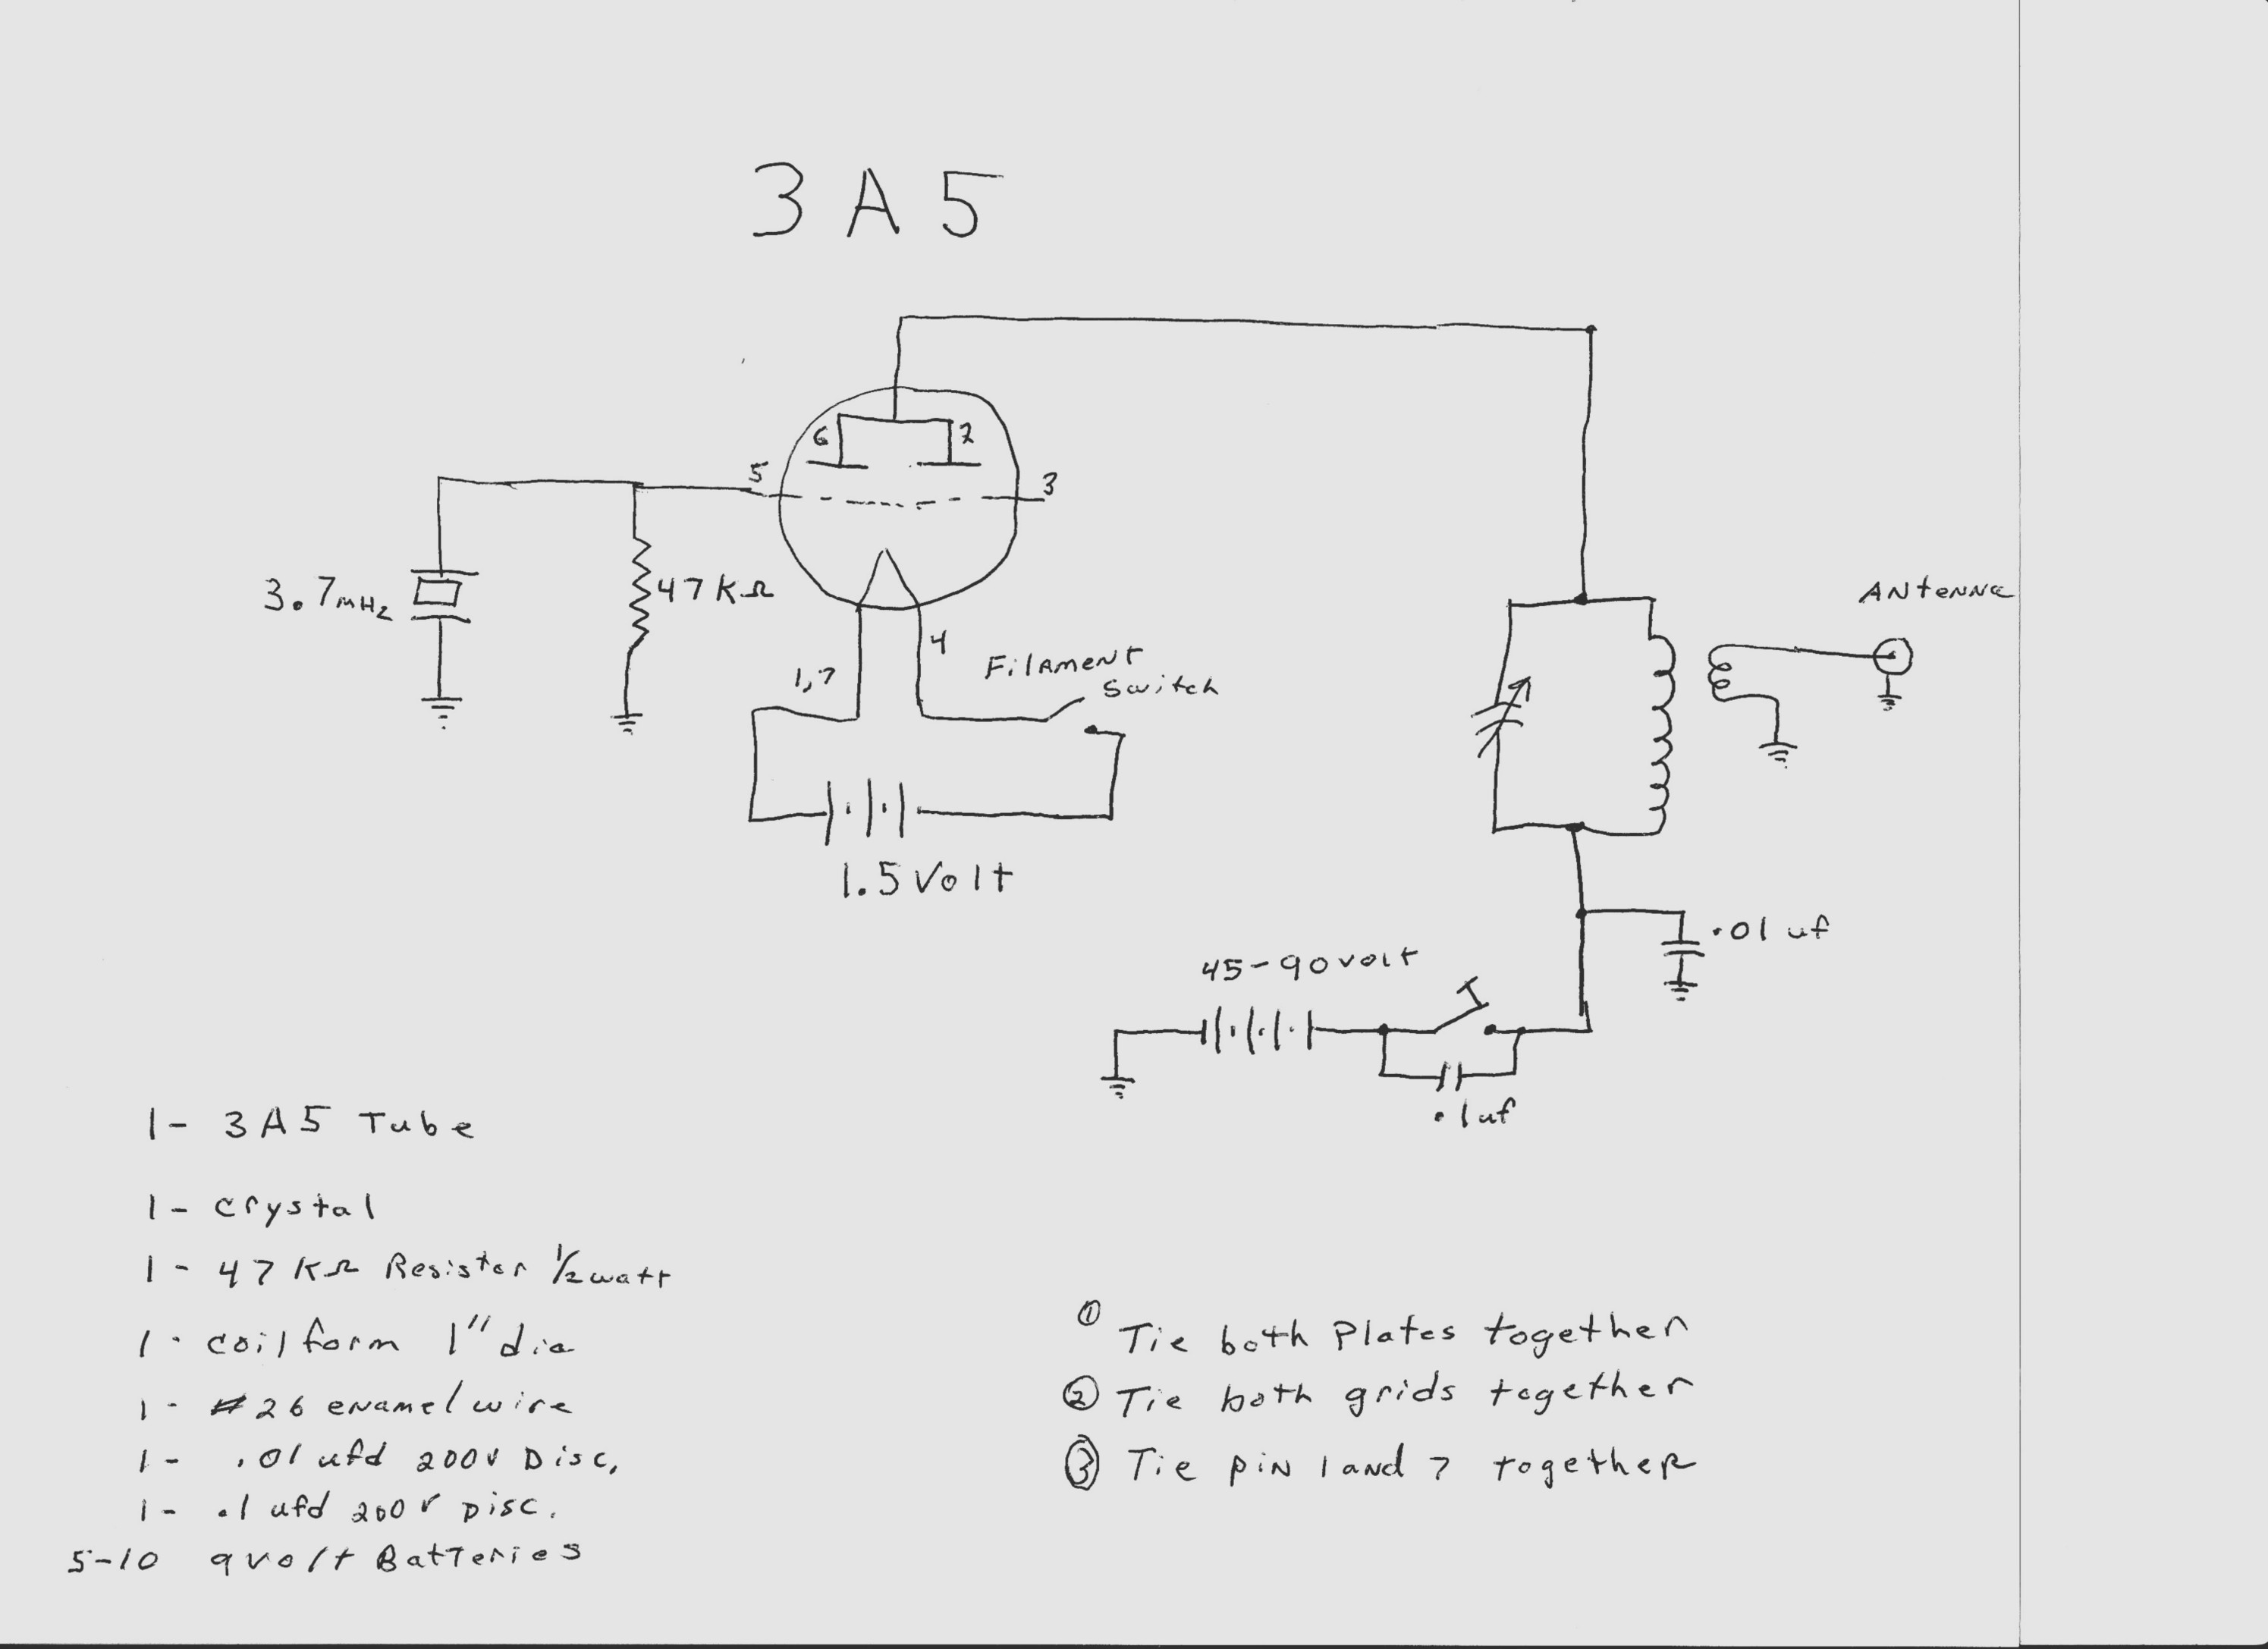 3A5
6
2
5
3
3.7 MHz
47KΩ
1,7
4
Filament
Switch
1.5 Volt
Antenna
.01 uf
45-90 volt
.1uf
1- 3A5 Tube
1- crystal
1- 47KΩ Resister 1/2 watt
1- coil form 1" dia
1- #26 enamel wire
1- .01 ufd 200V Disc,
1- .1 ufd 200V Disc.
5-10 9volt Batteries
① Tie both Plates together
② Tie both grids together
③ Tie pin 1 and 7 together